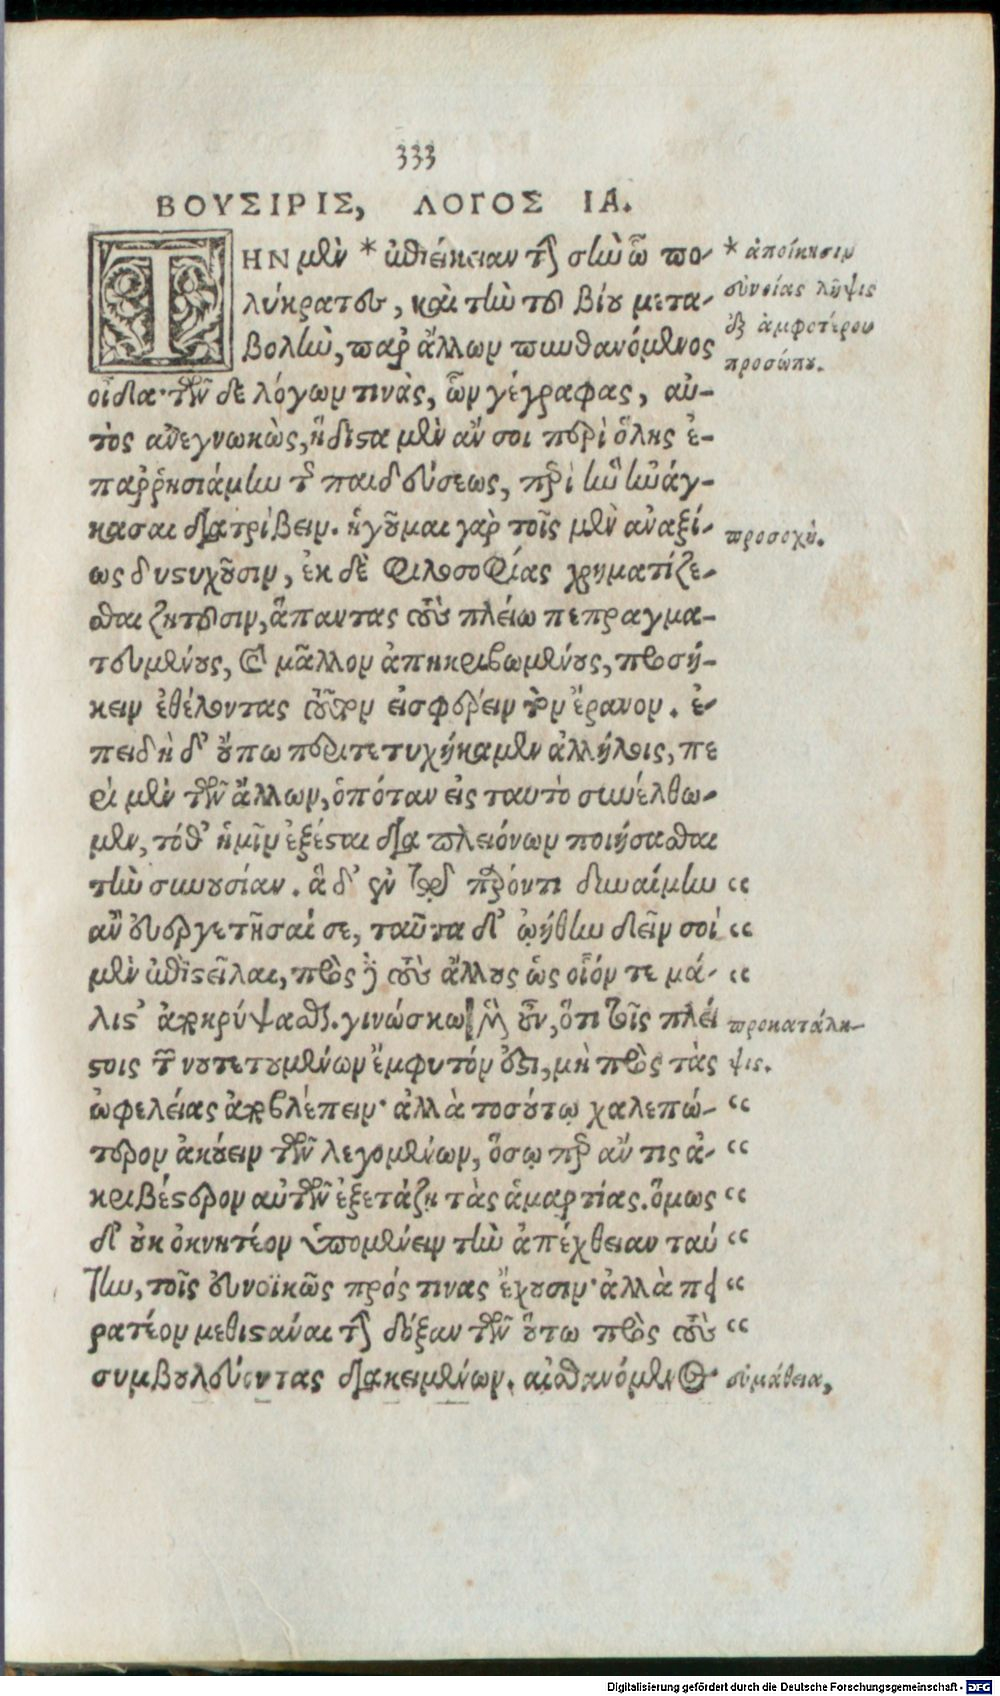 333
ΒΟΥΣΙΡΙΣ, ΛΟΓΟΣ ΙΑ.
ΤΗΝ μὲν * ἐπιείκειαν τὴν σὴν ὦ πο-
λύκρατες, καὶ τὴν τοῦ βίου μετα-
βολὴν, παρ' ἄλλων πυνθανόμενος
οἶδα· τῶν δὲ λόγων τινὰς, ὧν γέγραφας, αὐ-
τὸς ἀνεγνωκὼς, ἥδιστα μὲν ἄν σοι περὶ ὅλης ἐ-
παῤῥησιάμην τῆς παιδεύσεως, περὶ ἣν ἠνάγ-
κασαι διατρίβειν. ἡγοῦμαι γὰρ τοῖς μὲν ἀναξί-
ως δυστυχοῦσιν, ἐκ δὲ φιλοσοφίας χρηματίζε-
σθαι ζητοῦσιν, ἅπαντας τοὺς πλείω πεπραγμα-
τευμένους, καὶ μᾶλλον ἀπηκριβωμένους, προσή-
κειν ἐθέλοντας τοῦτον εἰσφέρειν τὸν ἔρανον. ἐ-
πειδὴ δ' οὔπω περιτετυχήκαμεν ἀλλήλοις, πε
ρὶ μὲν τῶν ἄλλων, ὁπόταν εἰς ταυτὸ συνέλθω-
μεν, τόθ' ἡμῖν ἐξέσται διὰ πλειόνων ποιήσασθαι
τὴν συνουσίαν. ἃ δ' ἐν τῷ παρόντι δυναίμην “
ἂν εὐεργετῆσαί σε, ταῦτα δ' ᾠήθην δεῖν σοὶ “
μὲν ἐπιστεῖλαι, πρὸς δὲ τοὺς ἄλλους ὡς οἷόν τε μά- “
λιστ' ἀποκρύψασθαι. γινώσκω μὲν οὖν, ὅτι τοῖς πλεί
στοις τῶν νουτετουμένων ἔμφυτόν ἐστι, μὴ πρὸς τὰς
ὠφελείας ἀποβλέπειν· ἀλλὰ τοσούτῳ χαλεπώ- “
τερον ἀκούειν τῶν λεγομένων, ὅσῳ περ ἄν τις ἀ- “
κριβέστερον αὐτῶν ἐξετάζῃ τὰς ἁμαρτίας. ὅμως “
δ' οὐκ ὀκνητέον ὑπομένειν τὴν ἀπέχθειαν ταύ “
την, τοῖς εὐνοϊκῶς πρός τινας ἔχουσιν· ἀλλὰ πει “
ρατέον μεθιστάναι τὴν δόξαν τῶν οὕτω πρὸς τοὺς “
συμβουλεύοντας διακειμένων. αἰσθανόμενος
* ἀποίκησιν
εὐνοίας λῆψις
ἐξ ἀμφοτέρου
προσώπου.
προσοχὴ.
προκατάλη-
ψις.
εὐμάθεια,
Digitalisierung gefördert durch die Deutsche Forschungsgemeinschaft - DFG